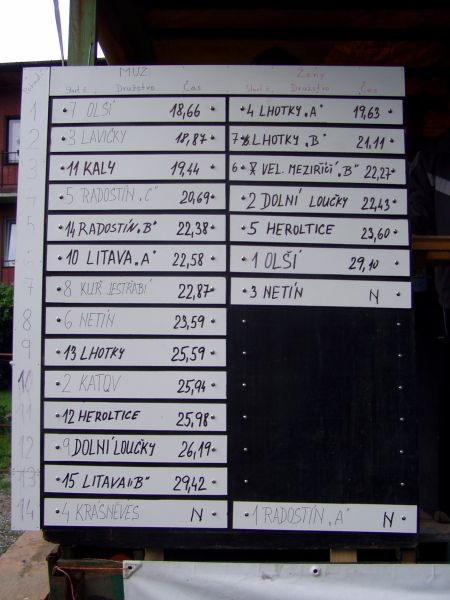 MUŽI Ženy
Start.č. Družstvo Čas Start.č. Družstvo Čas
1 7 OLŠÍ 18,66 4 LHOTKY „A" 19,63
2 3 LAVIČKY 18,87 7 LHOTKY „B" 21,11
3 11 KALY 19,44 6 VEL. MEZIŘÍČÍ „B" 22,27
4 5 RADOSTÍN „C" 20,69 2 DOLNÍ LOUČKY 22,43
5 14 RADOSTÍN „B" 22,38 5 HEROLTICE 23,60
6 10 LITAVA „A" 22,58 1 OLŠÍ 29,10
7 8 KUŘ. JESTŘABÍ 22,87 3 NETÍN N
8 6 NETÍN 23,59
9 13 LHOTKY 25,59
10 2 KATOV 25,94
11 12 HEROLTICE 25,98
12 9 DOLNÍ LOUČKY 26,19
13 15 LITAVA „B" 29,42
14 4 KRÁSNĚVES N 1 RADOSTÍN „A" N